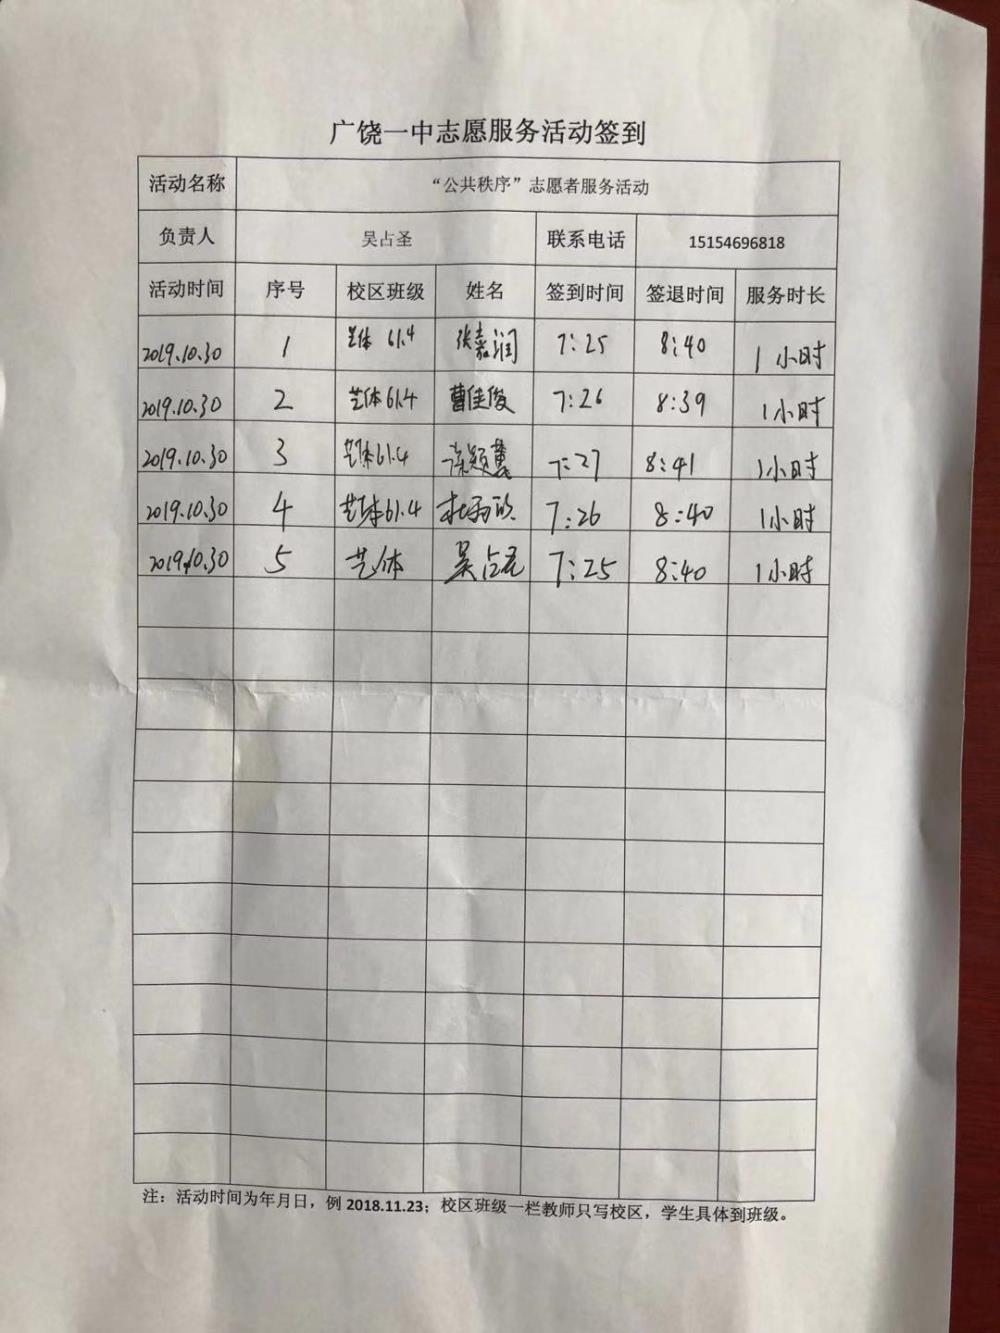 广饶一中志愿服务活动签到
活动名称 “公共秩序”志愿者服务活动
负责人 吴占圣 联系电话 15154696818
活动时间 序号 校区班级 姓名 签到时间 签退时间 服务时长
2019.10.30 1 艺体 61.4 张嘉润 7:25 8:40 1小时
2019.10.30 2 艺体61.4 曹佳俊 7:26 8:39 1小时
2019.10.30 3 艺体61.4 7:27 8:41 1小时
2019.10.30 4 艺体61.4 7:26 8:40 1小时
2019.10.30 5 艺体 吴占圣 7:25 8:40 1小时
注：活动时间为年月日，例 2018.11.23；校区班级一栏教师只写校区，学生具体到班级。